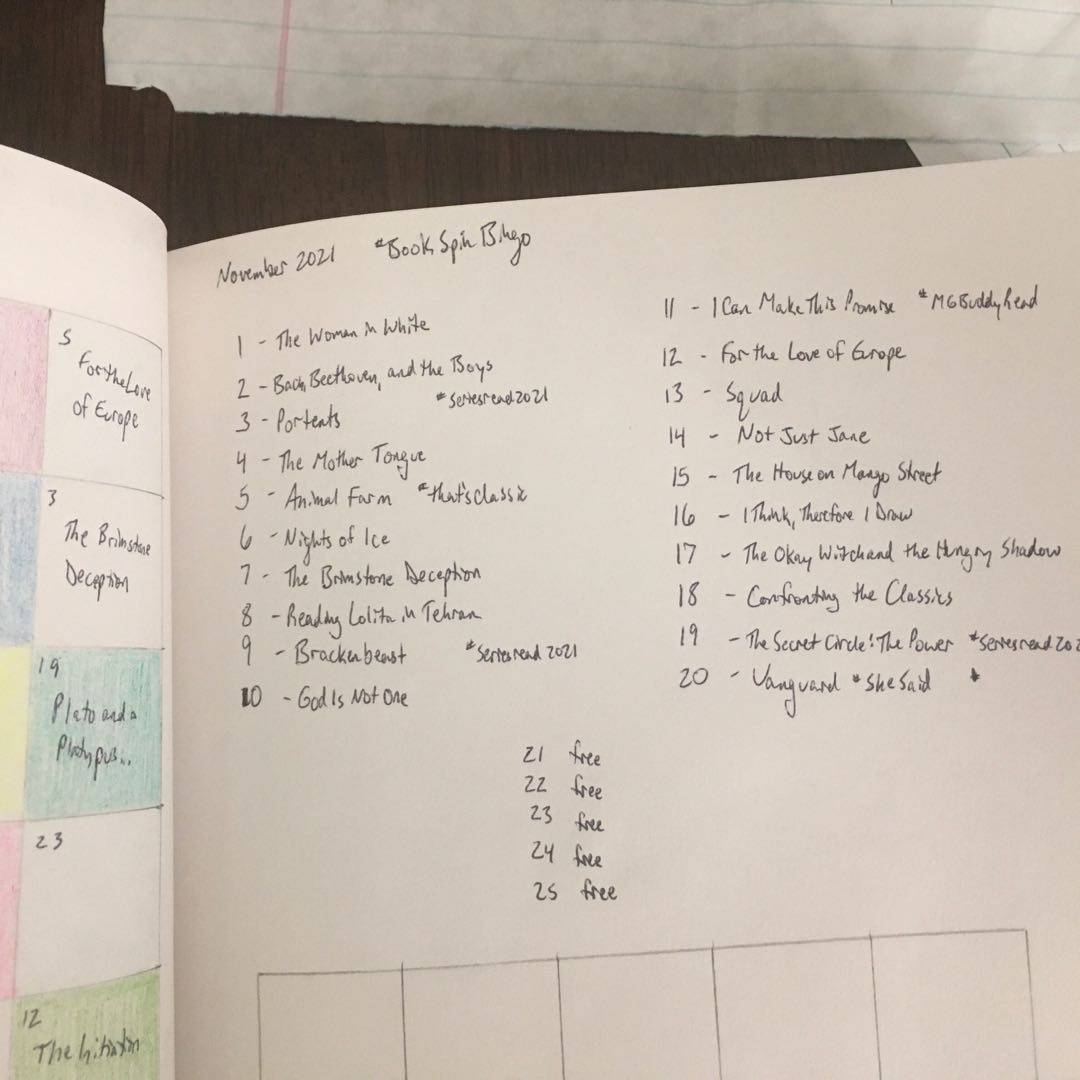 5
For the Love
of Europe
3
The Brimstone
Deception
19
Plato and a
Platypus...
23
12
The Initiation
November 2021 #BookSpinBingo
1 - The Woman in White
2 - Bach, Beethoven, and the Boys
3 - Portents #seriesread2021
4 - The Mother Tongue
5 - Animal Farm #that'sclassic
6 - Nights of Ice
7 - The Brimstone Deception
8 - Reading Lolita in Tehran
9 - Brackenbeast #seriesread2021
10 - God Is Not One
11 - I Can Make This Promise #MGBuddyRead
12 - For the Love of Europe
13 - Squad
14 - Not Just Jane
15 - The House on Mango Street
16 - I Think, Therefore I Draw
17 - The Okay Witch and the Hungry Shadow
18 - Confronting the Classics
19 - The Secret Circle: The Power #seriesread202
20 - Vanguard #SheSaid *
21 free
22 free
23 free
24 free
25 free